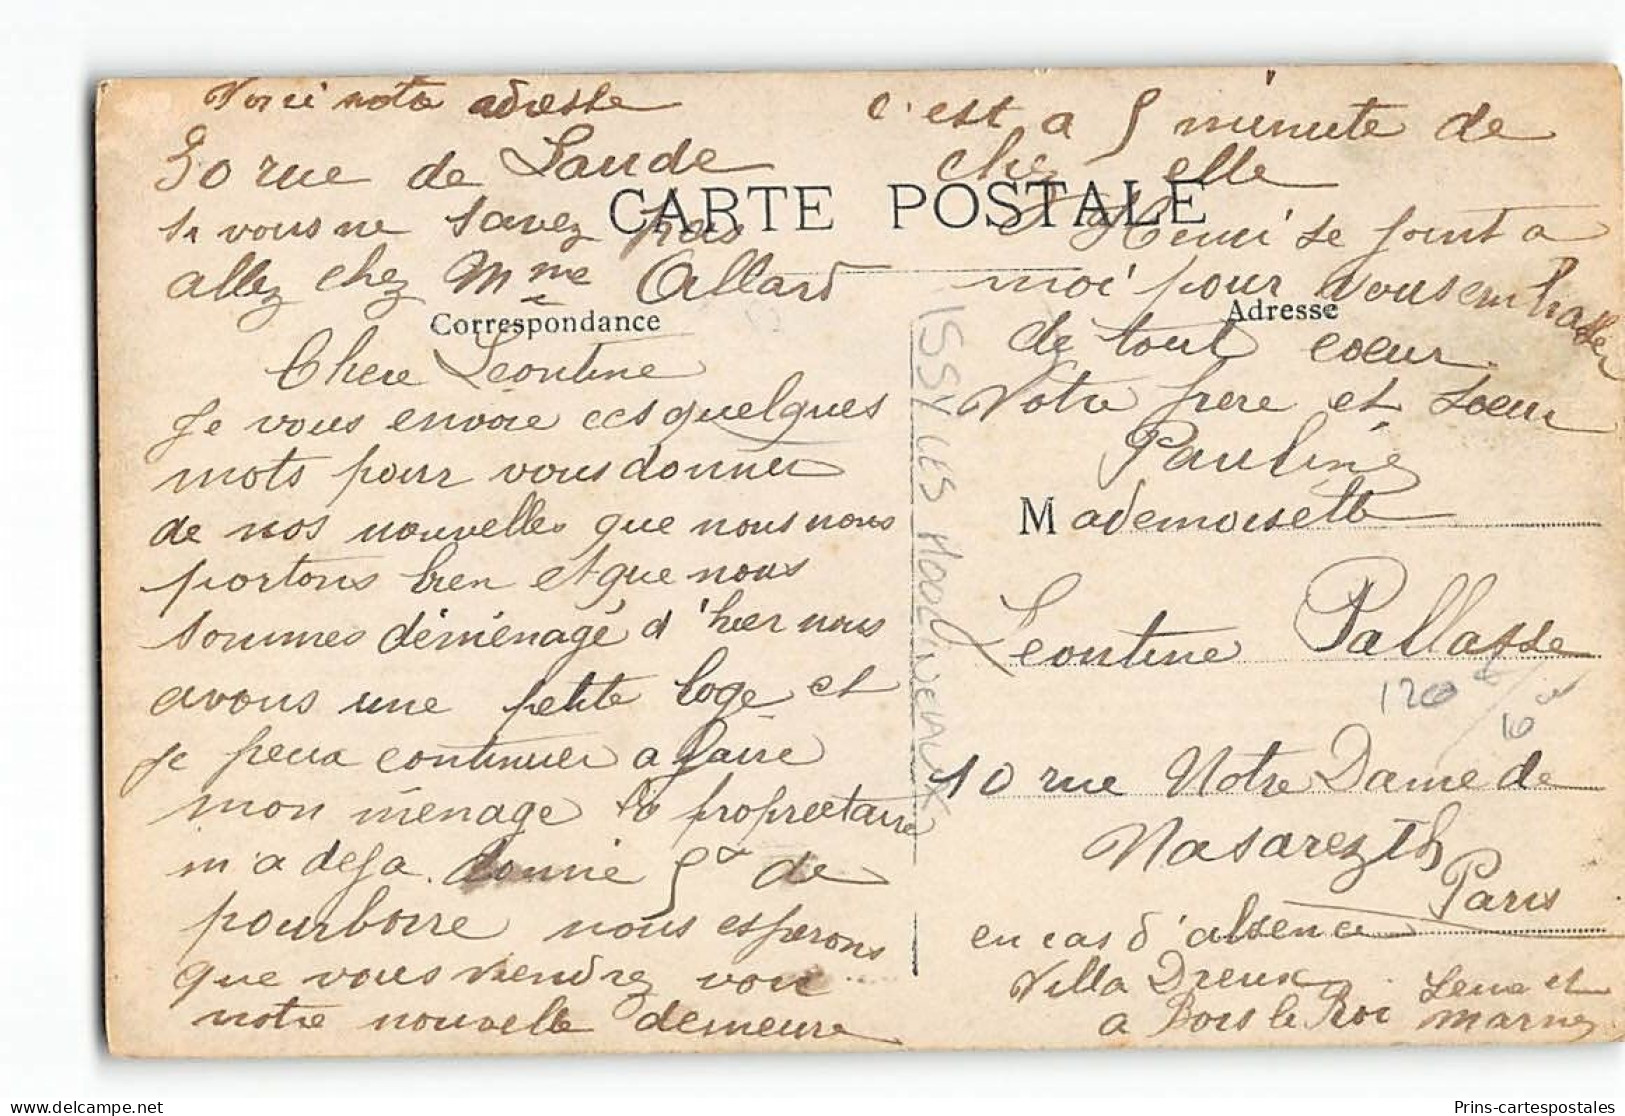 Voici notre adresse
50 rue de Laude
si vous ne savez pas
allez chez Mme Allard
CARTE POSTALE
Correspondance
Chere Léontine
Je vous envoie ces quelques
mots pour vous donner
de nos nouvelles que nous nous
portons bien et que nous
sommes déménagé d'hier nous
avons une petite loge et
je peux continuer a faire
mon ménage la proprietaire
m'a deja donné 5 de
pourboire nous esperons
que vous viendrez voir
notre nouvelle demeure
c'est a 5 minute de
chez elle
Henri se joint a
moi pour vous embrasser
Adresse
de tout coeur
Votre frere et soeur
Pauline
Mademoiselle
Leontine Pallasse
120
10
10 rue Notre Dame de
Nasarezth
Paris
en cas d'absence
Villa Dreux
a Bois le Roi Seine et
Marne
ISSY LES MOULINEAUX
Prins-cartespostales